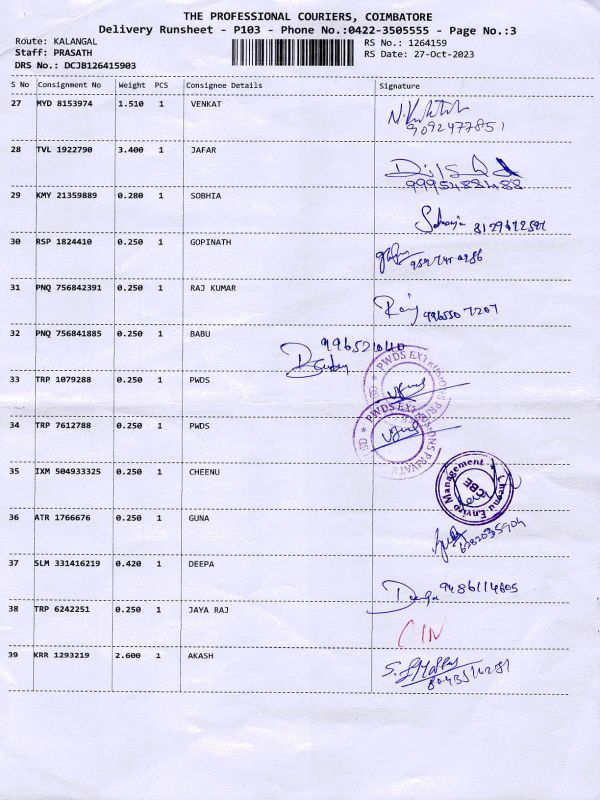 THE PROFESSIONAL COURIERS, COIMBATORE
Delivery Runsheet - P103 - Phone No.:0422-3505555 - Page No.:3
Route: KALANGAL
RS No.: 1264159
Staff: PRASATH
RS Date: 27-Oct-2023
DRS No.: DCJB126415903
S No Consignment No Weight PCS Consignee Details Signature
27 MYD 8153974 1.510 1 VENKAT
9092477851
28 TVL 1922790 3.400 1 JAFAR
9995488488
29 KMY 21359889 0.280 1 SOBHIA
30 RSP 1824410 0.250 1 GOPINATH
31 PNQ 756842391 0.250 1 RAJ KUMAR
Raj 9965507207
32 PNQ 756841885 0.250 1 BABU
996521040
33 TRP 1079288 0.250 1 PWDS
PWDS
34 TRP 7612788 0.250 1 PWDS
PWDS
35 IXM 504933325 0.250 1 CHEENU
Cheenu Enviro Management
CBE
36 ATR 1766676 0.250 1 GUNA
6382035904
37 SLM 331416219 0.420 1 DEEPA
Deepa 9486114605
38 TRP 6242251 0.250 1 JAYA RAJ
39 KRR 1293219 2.600 1 AKASH